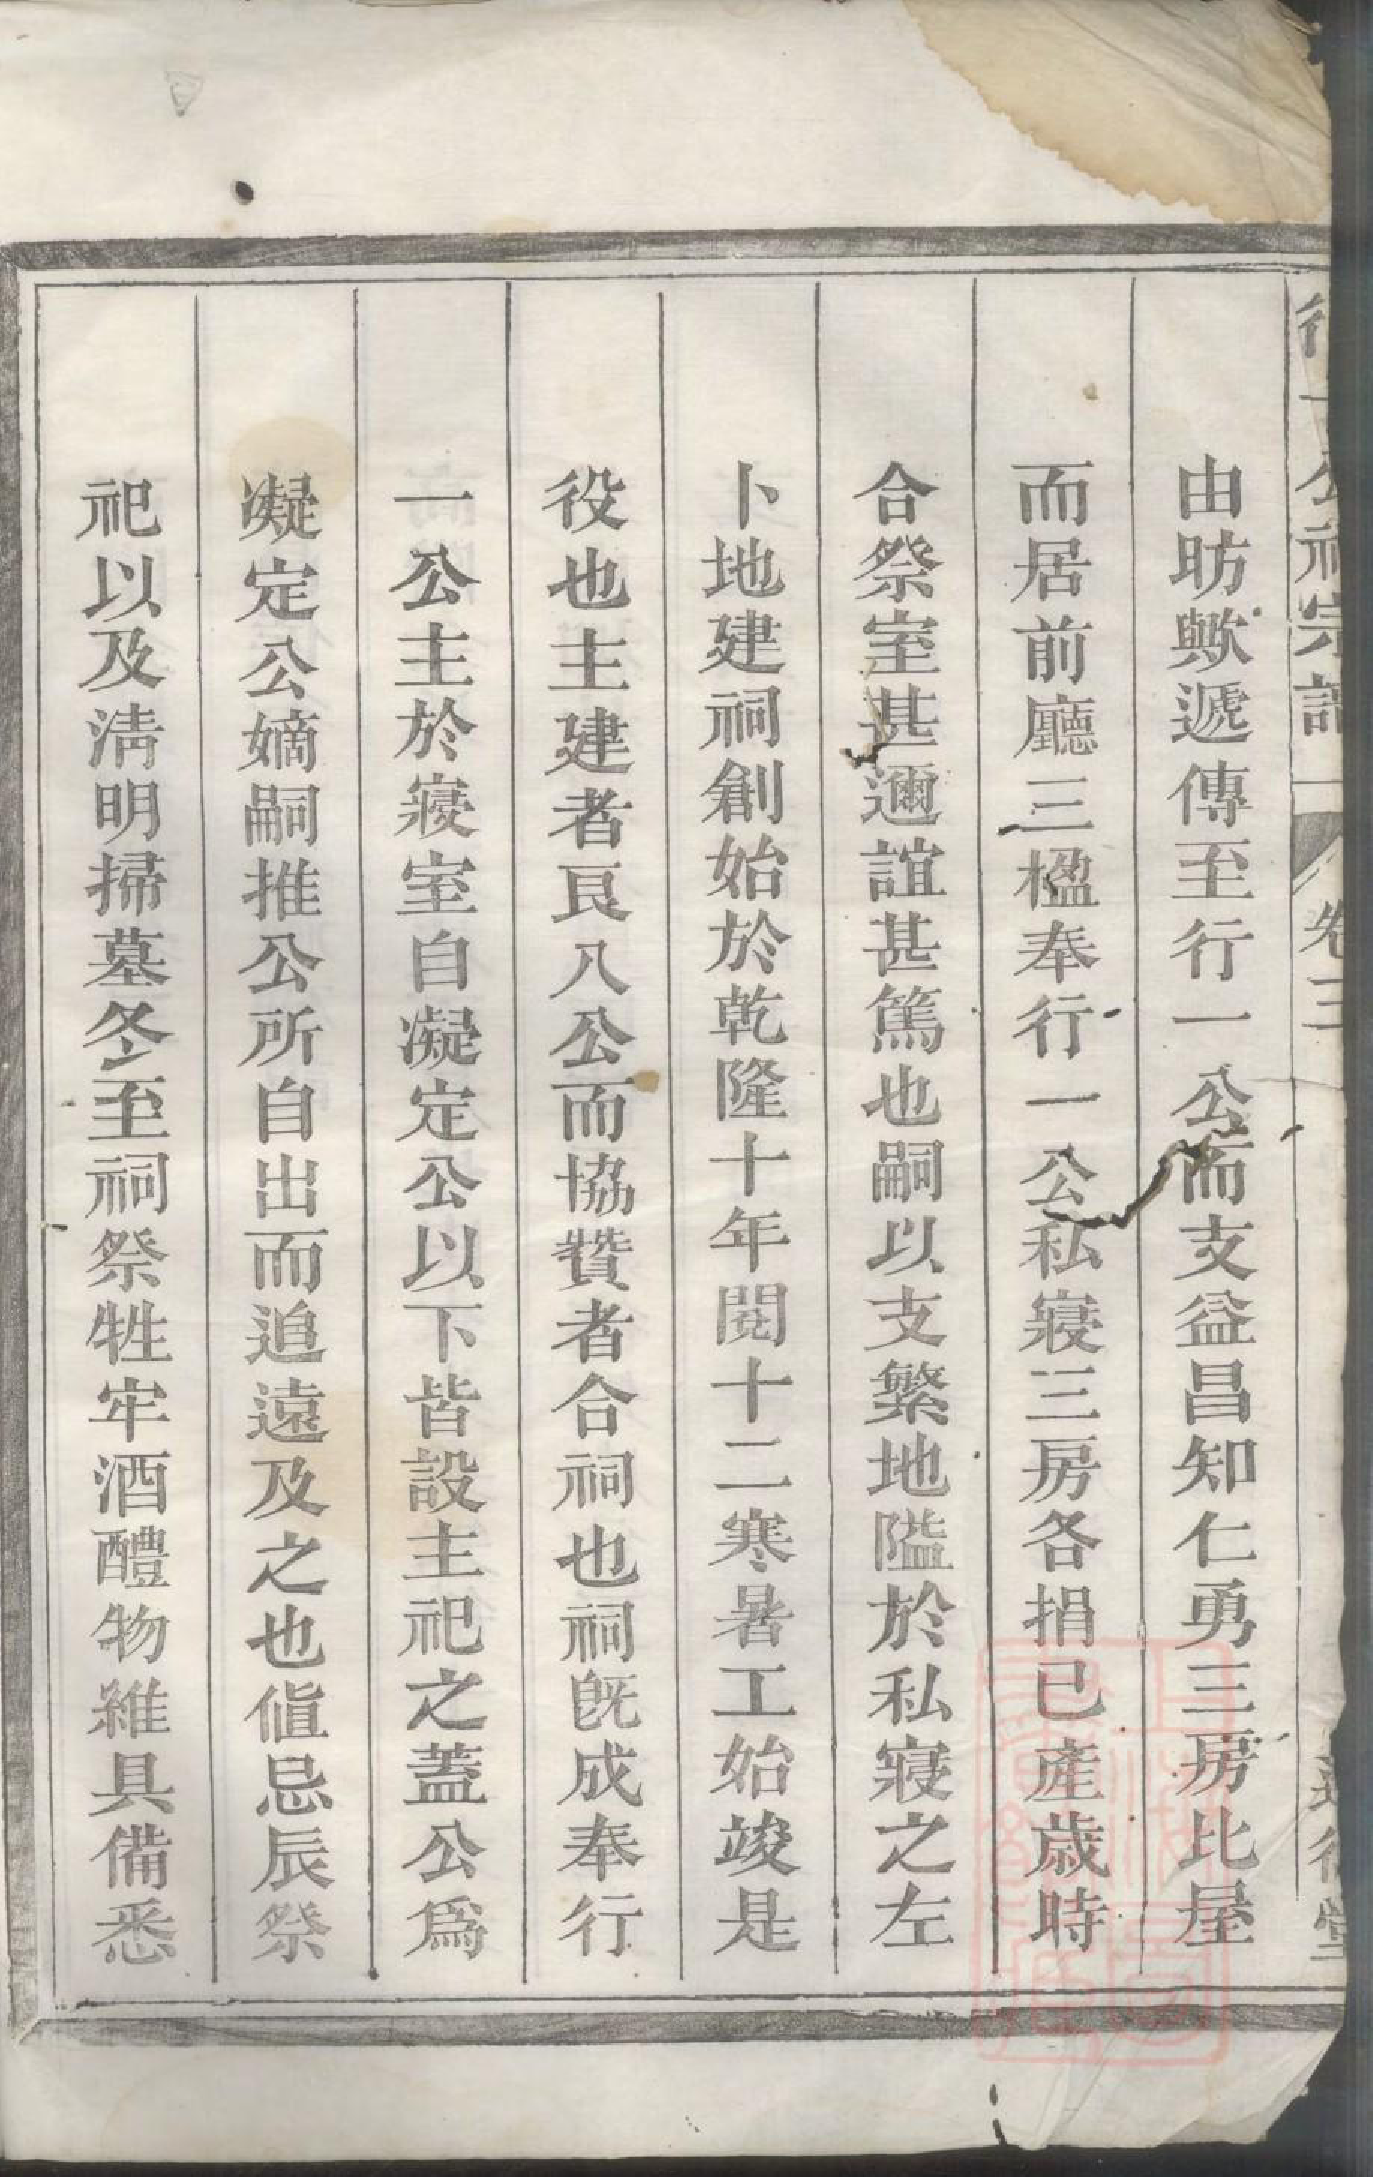 由昉歟遞傳至行一公而支益昌知仁勇三房比屋
而居前廳三楹奉行一公私寢三房各捐已產歲時
合祭室甚邇誼甚篤也嗣以支繁地隘於私寢之左
卜地建祠創始於乾隆十年閱十二寒暑工始竣是
役也主建者良八公而協贊者合祠也祠旣成奉行
一公主於寢室自凝定公以下皆設主祀之蓋公爲
凝定公嫡嗣推公所自出而追遠及之也値忌辰祭
祀以及淸明掃墓冬至祠祭牲牢酒醴物維具備悉